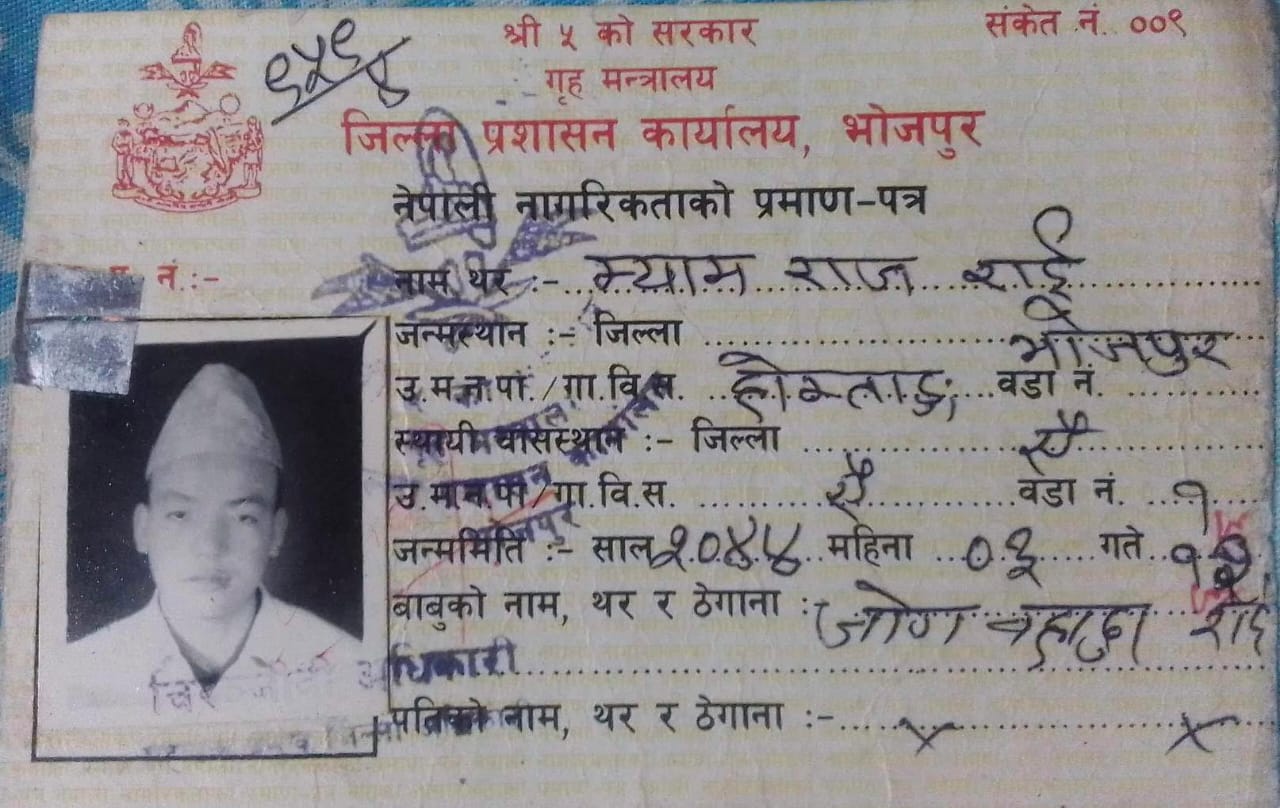 श्री ५ को सरकार
संकेत नं. ००९
गृह मन्त्रालय
जिल्ला प्रशासन कार्यालय, भोजपुर
नेपाली नागरिकताको प्रमाण-पत्र
नं.:-
नाम थर :- श्याम राज राई
जन्मस्थान :- जिल्ला भोजपुर
उ.म.न.पा./गा.वि.स. वडा नं.
स्थायी वासस्थान :- जिल्ला ऐ
उ.म.न.पा/गा.वि.स. ऐ वडा नं. १
जन्ममिति :- साल २०४४ महिना ०३ गते
बाबुको नाम, थर र ठेगाना : जोग बहादुर राई
अधिकारी
पतिको नाम, थर र ठेगाना :- x x